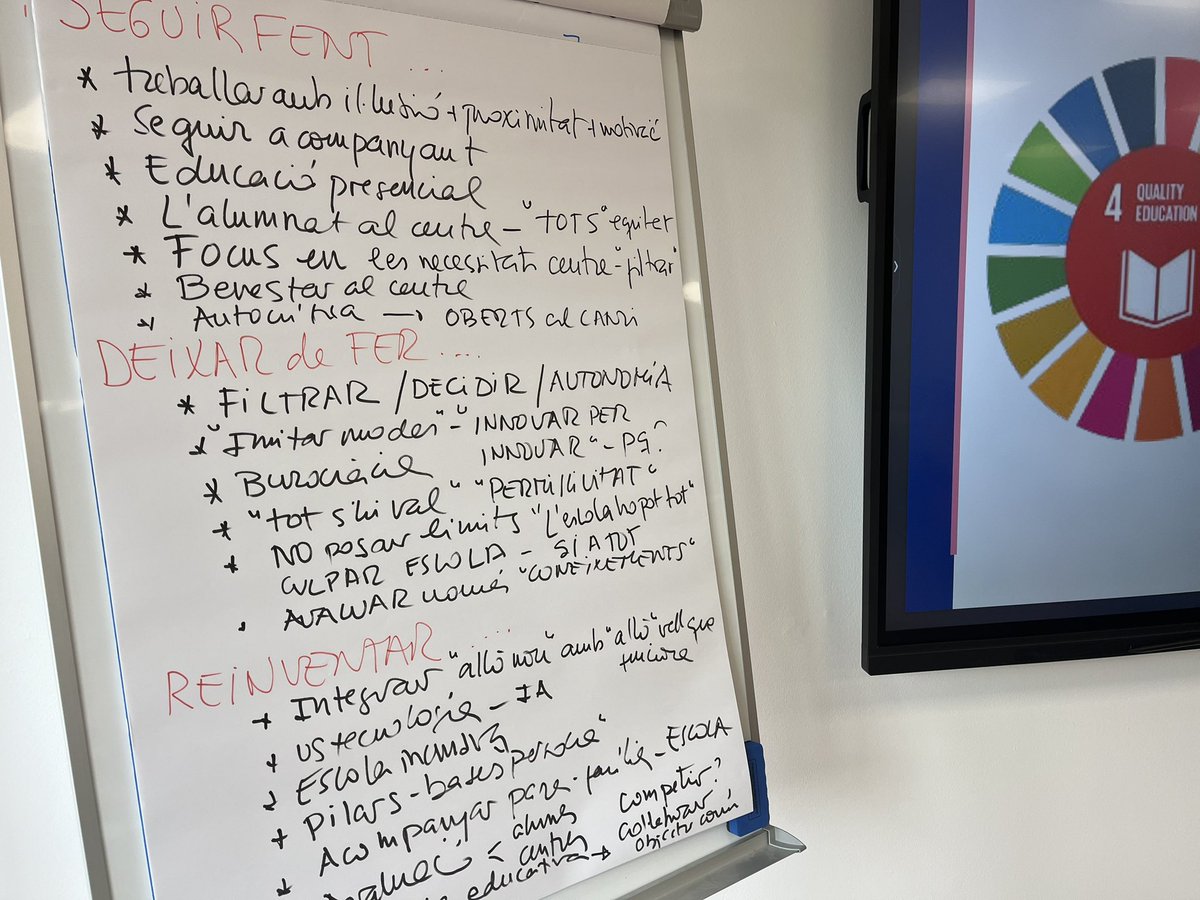 SEGUIR FENT ...
* treballar amb il·lusió + proximitat + motivació
* Seguir acompanyant
* Educació presencial
* L'alumnat al centre - "TOTS" equitat
* Focus en les necessitats centre - "filtrar"
* Benestar al centre
* Autocrítica → OBERTS al CANVI
DEIXAR de FER ....
* FILTRAR / DECIDIR / AUTONOMÍA
* "Imitar modes" - "INNOVAR PER
INNOVAR" - PQ?
* Burocràcia
* "tot s'hi val" "PERMISSIVITAT"
* NO posar límits "L'escola ho pot tot"
CULPAR ESCOLA - SI A TOT
. AVALUAR només "CONEIXEMENTS"
REINVENTAR ....
+ Integrar "allò nou" amb "allò" vell que
funciona
+ US tecnologia - IA
Escola
+ Pilars - bases
Acompanyar família - ESCOLA
Avaluació < alumnes
centres
competir?
educativa →
objectiu comú
4 QUALITY
EDUCATION